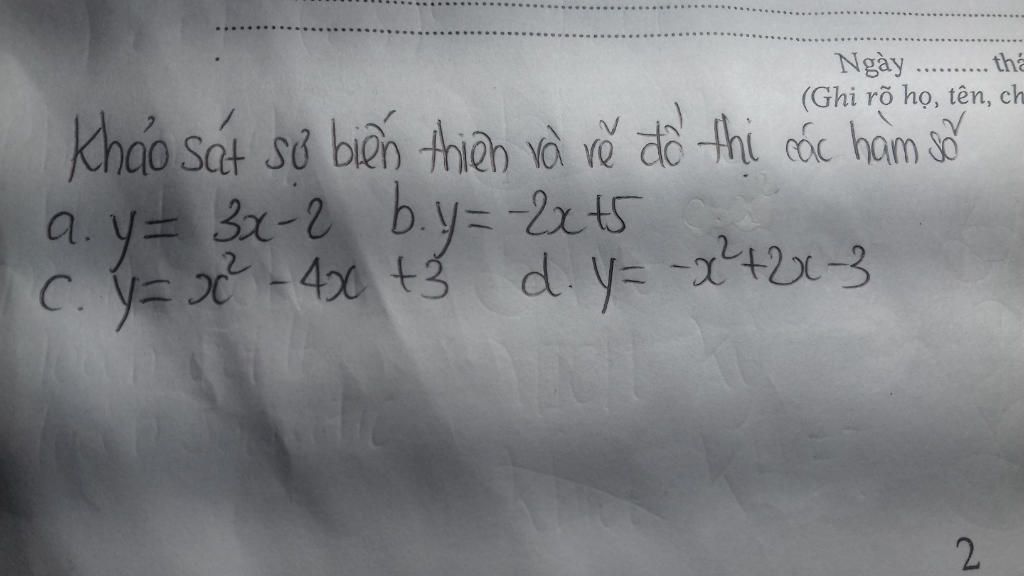 Ngày .......... thá
(Ghi rõ họ, tên, ch
Khảo sát sự biến thiên và vẽ đồ thị các hàm số
a. y = 3x-2 b. y = -2x+5
c. y = x² - 4x +3 d. y = -x²+2x-3
2